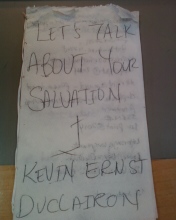 LET'S TALK
ABOUT YOUR
SALVATION
I
KEVIN ERNST
DUCLAIRON